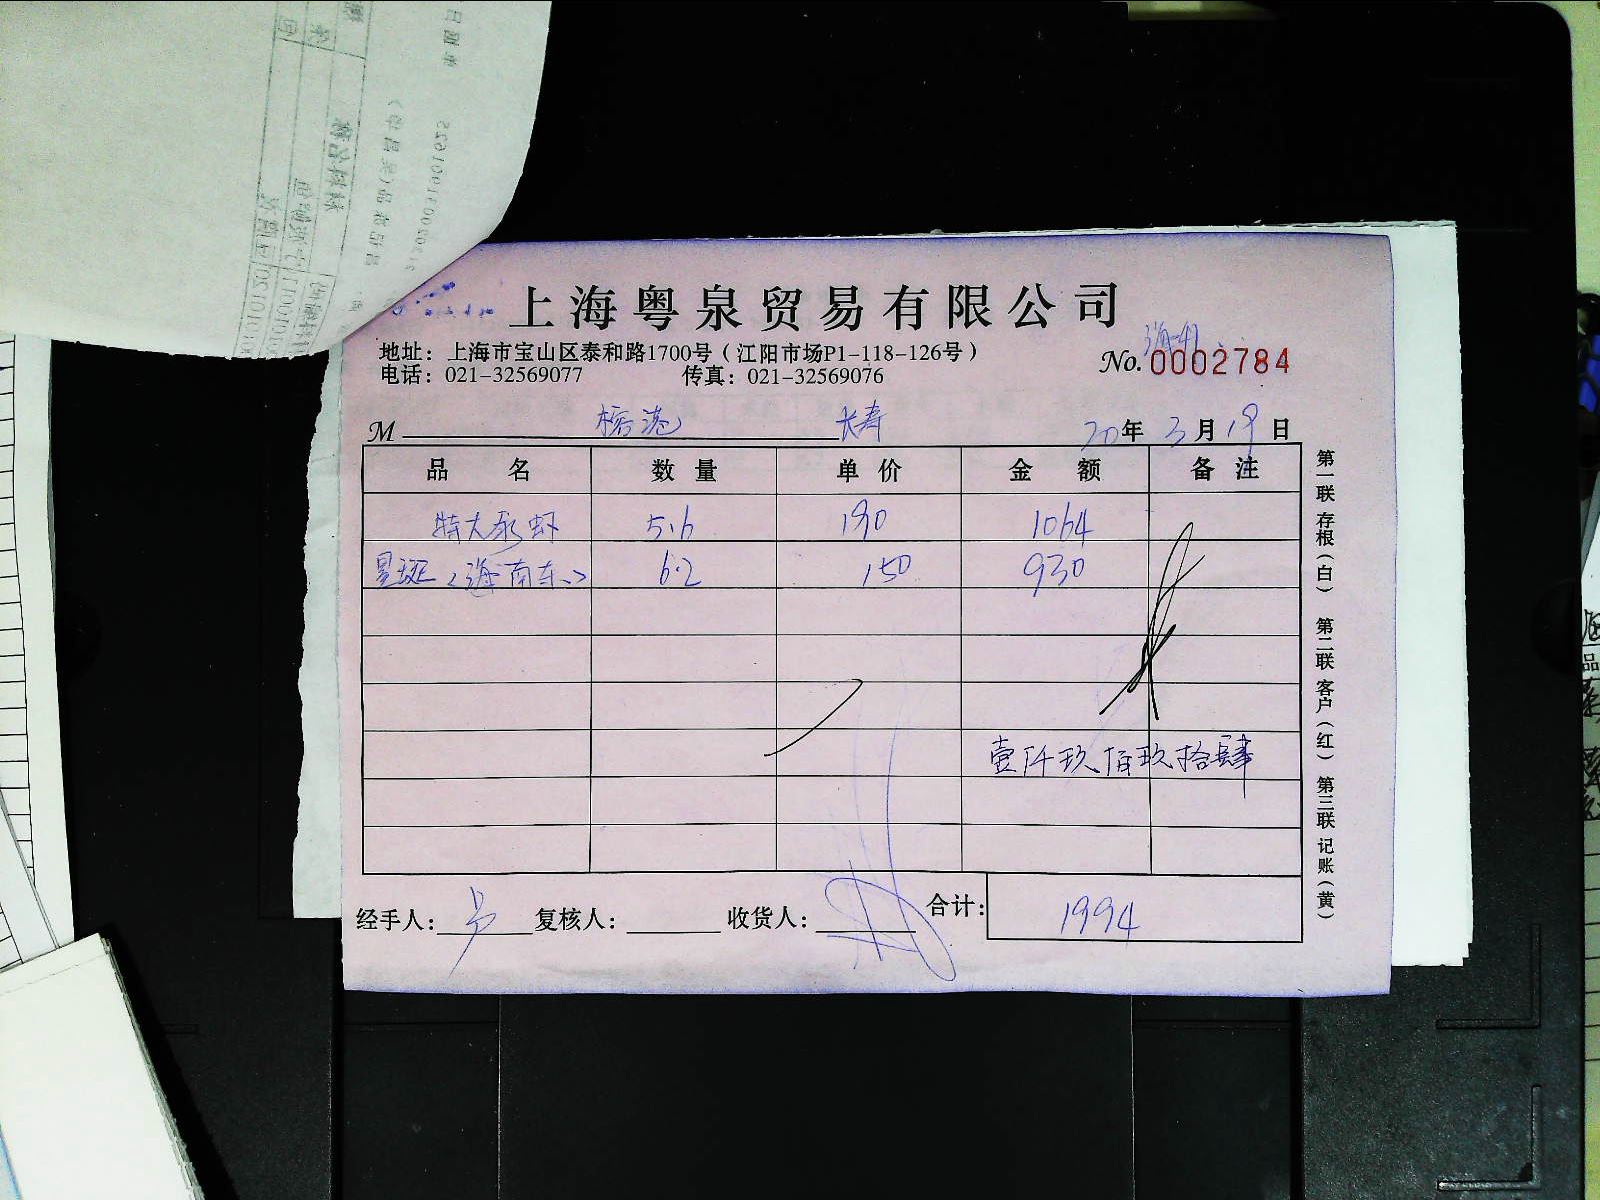 上海粤泉贸易有限公司
地址：上海市宝山区泰和路1700号（江阳市场P1-118-126号）
电话：021-32569077 传真：021-32569076
No.0002784
M 榕港 长寿 20年3月19日
品名 数量 单价 金额 备注
特大 虾 5.6 190 1064
星斑（海南东 ） 6.2 150 930
壹仟玖佰玖拾肆
经手人： 复核人： 收货人： 合计：1994
第一联 存根（白） 第二联 客户（红） 第三联 记账（黄）